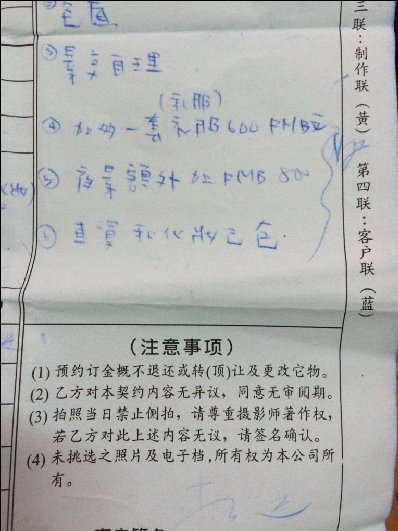 三联：制作联（黄） 第四联：客户联（蓝）
③ 景点自理
（礼服）
④ 加 一套礼服600 RMB
⑤ 夜景額外加RMB 80
（注意事项）
(1) 预约订金概不退还或转(顶)让及更改它物。
(2) 乙方对本契约内容无异议，同意无审阅期。
(3) 拍照当日禁止侧拍，请尊重摄影师著作权，
若乙方对此上述内容无议，请签名确认。
(4) 未挑选之照片及电子档,所有权为本公司所
有。